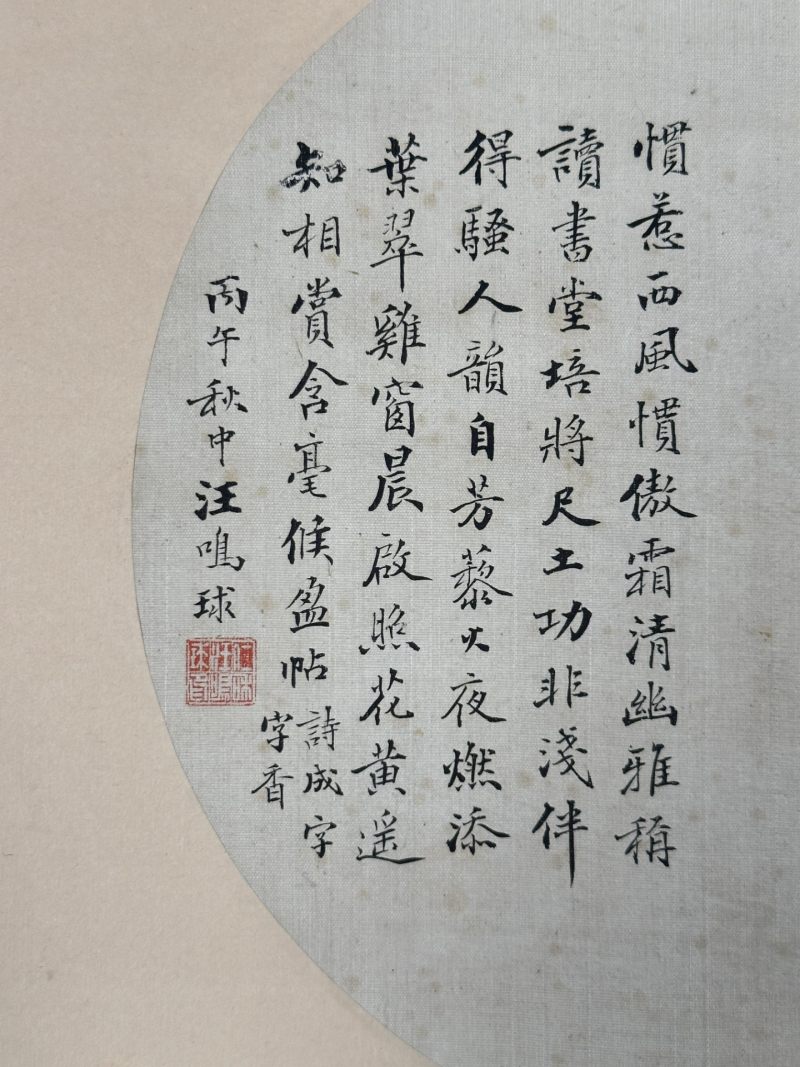 慣惹西風慣傲霜清幽雅稱
讀書堂培將尺土功非淺伴
得騷人韻自芳藜火夜燃添
葉翠雞窗晨啟照花黃遥
知相賞含毫候盈帖詩成字
字香
丙午秋中汪鳴球